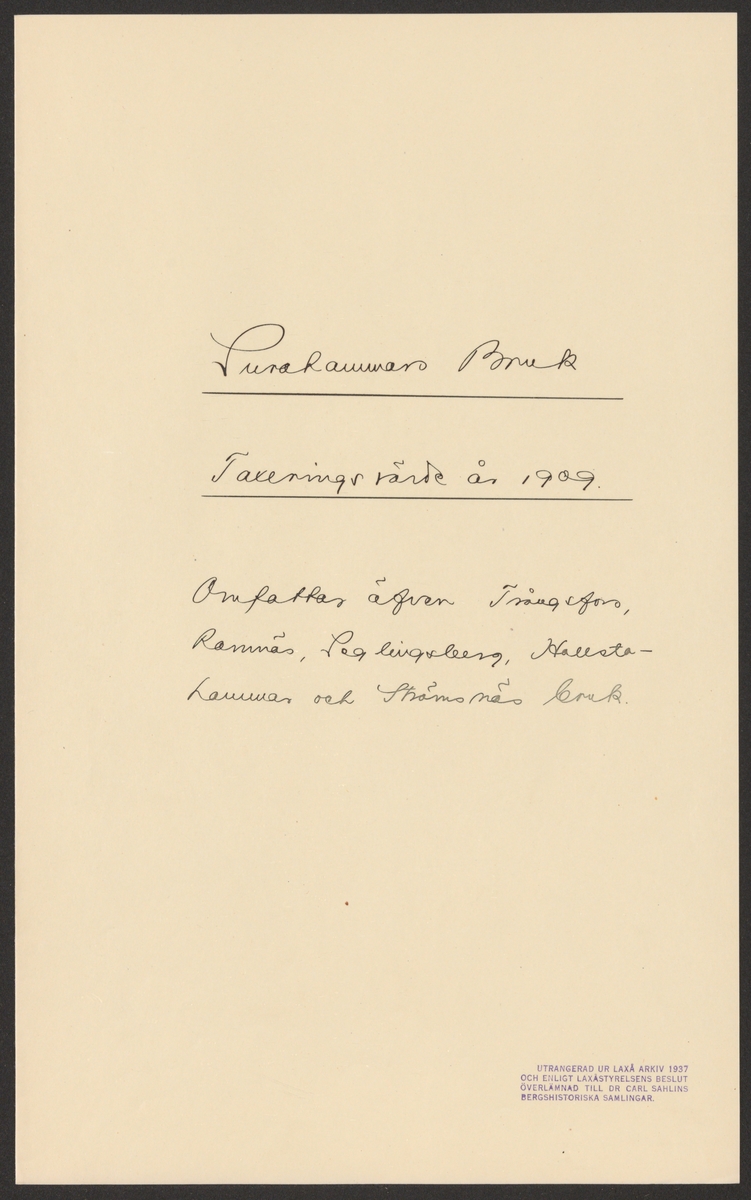 Surahammars Bruk
Taxeringsvärde år 1909.
Omfattar äfven Trångsfors,
Ramnäs, Seglingsberg, Hallsta-
hammar och Strömsnäs bruk.
UTRANGERAD UR LAXÅ ARKIV 1937
OCH ENLIGT LAXÅSTYRELSENS BESLUT
ÖVERLÄMNAD TILL DR CARL SAHLINS
BERGSHISTORISKA SAMLINGAR.